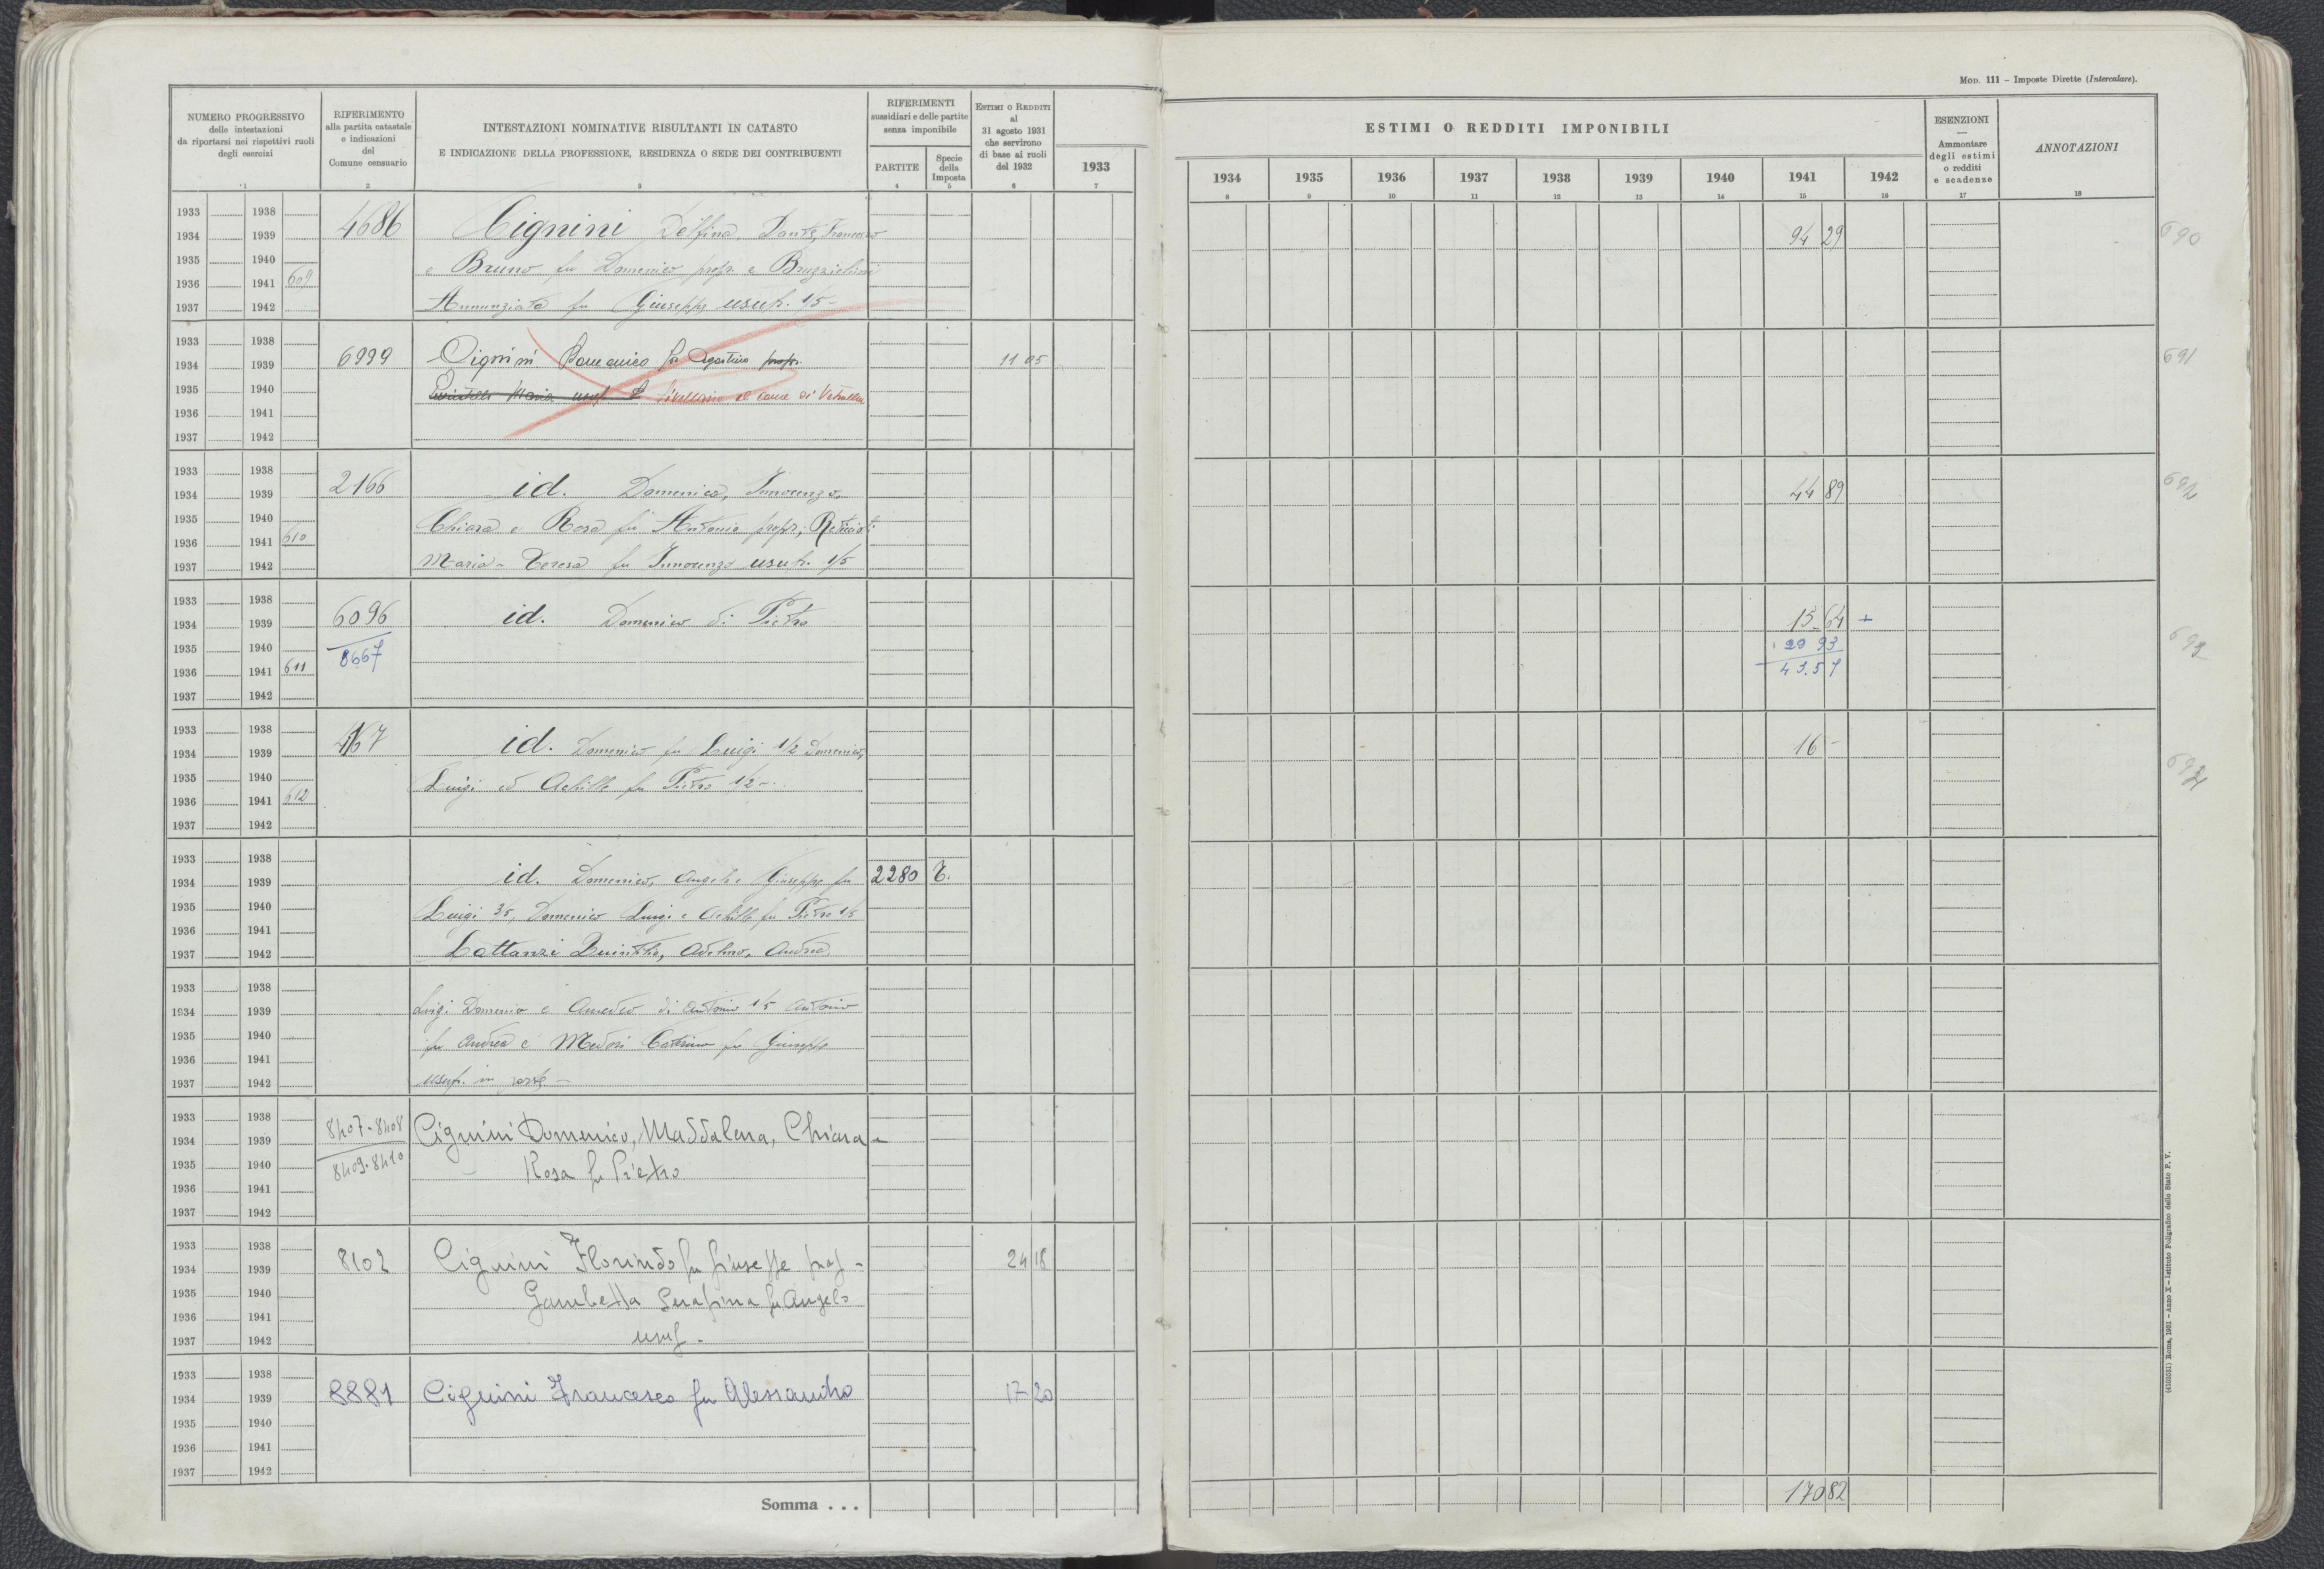 Mod. 111 – Imposte Dirette (Intercalare).
NUMERO PROGRESSIVO
delle intestazioni
da riportarsi nei rispettivi ruoli
degli esercizi
1
RIFERIMENTO
alla partita catastale
e indicazioni
del
Comune censuario
2
INTESTAZIONI NOMINATIVE RISULTANTI IN CATASTO
E INDICAZIONE DELLA PROFESSIONE, RESIDENZA O SEDE DEI CONTRIBUENTI
3
RIFERIMENTI
sussidiari e delle partite
senza imponibile
PARTITE
4
Specie
della
Imposta
5
Estimi o Redditi
al
31 agosto 1931
che servirono
di base ai ruoli
del 1932
6
1933
7
ESTIMI O REDDITI IMPONIBILI
1934 1935 1936 1937 1938 1939 1940 1941 1942
8 9 10 11 12 13 14 15 16
ESENZIONI
—
Ammontare
degli estimi
o redditi
e scadenze
17
ANNOTAZIONI
18
1933 1938
1934 1939 4686 Cignini Delfina, Dante, Francesco 94 29 690
1935 1940 e Bruno fu Domenico propr. e
1936 1941 609
1937 1942 Annunziata fu Giuseppe usuf. 1/5 –
1933 1938
1934 1939 6999 Cignini Domenico fu Agostino propr. 11 05 691
1935 1940 Maria usuf. livellario al Comune di Vetralla
1936 1941
1937 1942
1933 1938
1934 1939 2166 id. Domenico, Innocenzo, 44 89 692
1935 1940 Chiara e Rosa fu Antonio propr.;
1936 1941 610
1937 1942 Maria Teresa fu Innocenzo usuf. 1/5
1933 1938
1934 1939 6096 id. Domenico di Pietro 15 64 +
1935 1940 8667 29 93 693
1936 1941 611
1937 1942
1933 1938
1934 1939 id. Domenico fu Luigi 1/2 Domenico, 16 –
1935 1940 Luigi ed Achille fu Pietro 1/2 –
1936 1941 612
1937 1942
1933 1938
1934 1939 id. Domenico, Angelo e Giuseppe fu 2280 T.
1935 1940 Luigi 3/5, Domenico Luigi e Achille fu Pietro 1/5
1936 1941
1937 1942 Lattanzi Quintilio, Adelmo, Andrea,
1933 1938
1934 1939 Luigi Domenico e Amedeo di Antonio 1/5 Antonio
1935 1940 fu Andrea e Medori Caterina fu Giuseppe
1936 1941
1937 1942 usuf. in parte –
1933 1938 8407-8408
1934 1939 Cignini Domenico, Maddalena, Chiara e
1935 1940 8409-8410 Rosa fu Pietro
1936 1941
1937 1942
1933 1938
1934 1939 8102 Cignini Florindo fu Giuseppe prop – 24 18
1935 1940 Gambetta Serafina fu Angelo
1936 1941
1937 1942 usuf –
1933 1938
1934 1939 8881 Cignini Francesco fu Alessandro 17 20
1935 1940
1936 1941
1937 1942
Somma . . . 170 82
(4103551) Roma, 1931 – Anno X – Istituto Poligrafico dello Stato P. V.